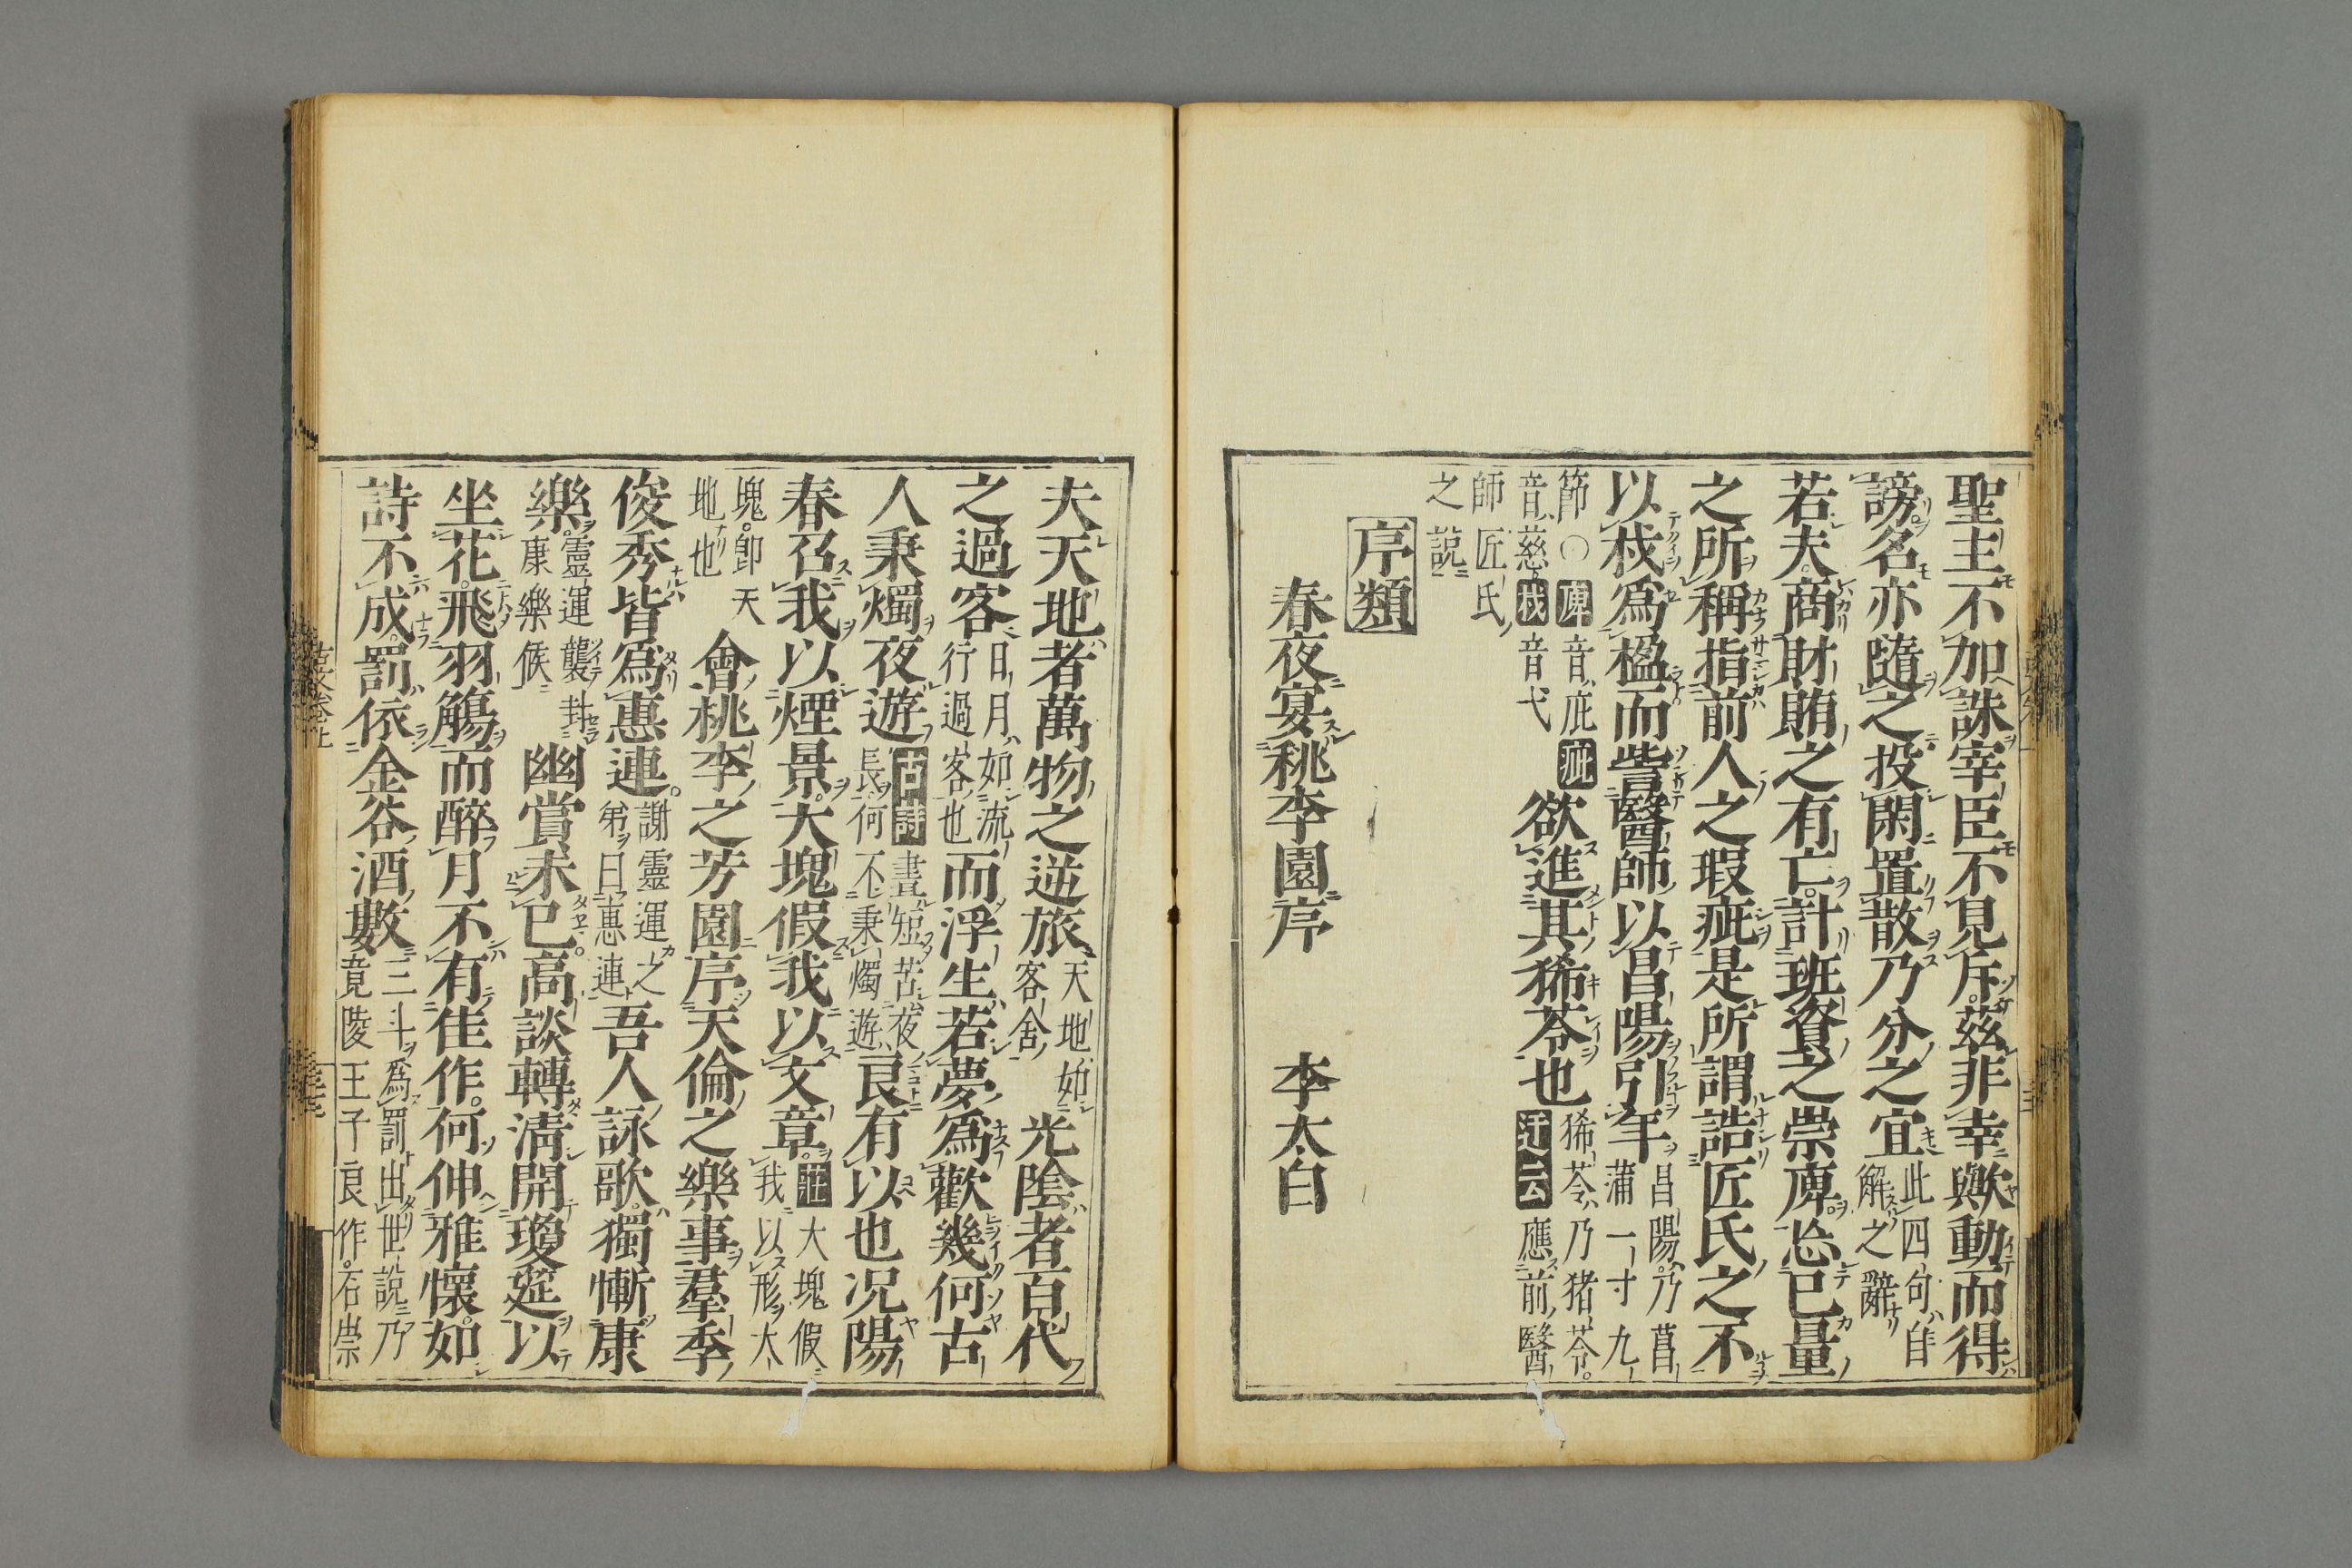 聖主不加誅宰臣不見斥茲非幸歟動而得
謗名亦隨之投閑置散乃分之宜此四句自
解之辭
若夫商財賄之有亡計班資之崇庳忘己量
之所稱指前人之瑕疵是所謂詰匠氏之不
以杙爲楹而訾醫師以昌陽引年昌陽乃菖
蒲一寸九
節〇庳音庇疵
音慈杙音弋
欲進其豨苓也豨苓乃猪苓
迂云應前醫
師匠氏
之說
序類
春夜宴桃李園序 李太白
夫天地者萬物之逆旅天地如
客舍
光陰者百代
之過客日月如流
行過客也
而浮生若夢爲歡幾何古
人秉燭夜遊古詩晝短苦夜
長何不秉燭遊
良有以也况陽
春召我以煙景大塊假我以文章莊大塊假
我以形大
塊卽天
地也
會桃李之芳園序天倫之樂事羣季
俊秀皆爲惠連謝靈運之
弟曰惠連
吾人詠歌獨慚康
樂靈運襲封
康樂侯
幽賞未已高談轉清開瓊筵以
坐花飛羽觴而醉月不有佳作何伸雅懷如
詩不成罰依金谷酒數三斗爲罰出世說乃
竟陵王子良作石崇